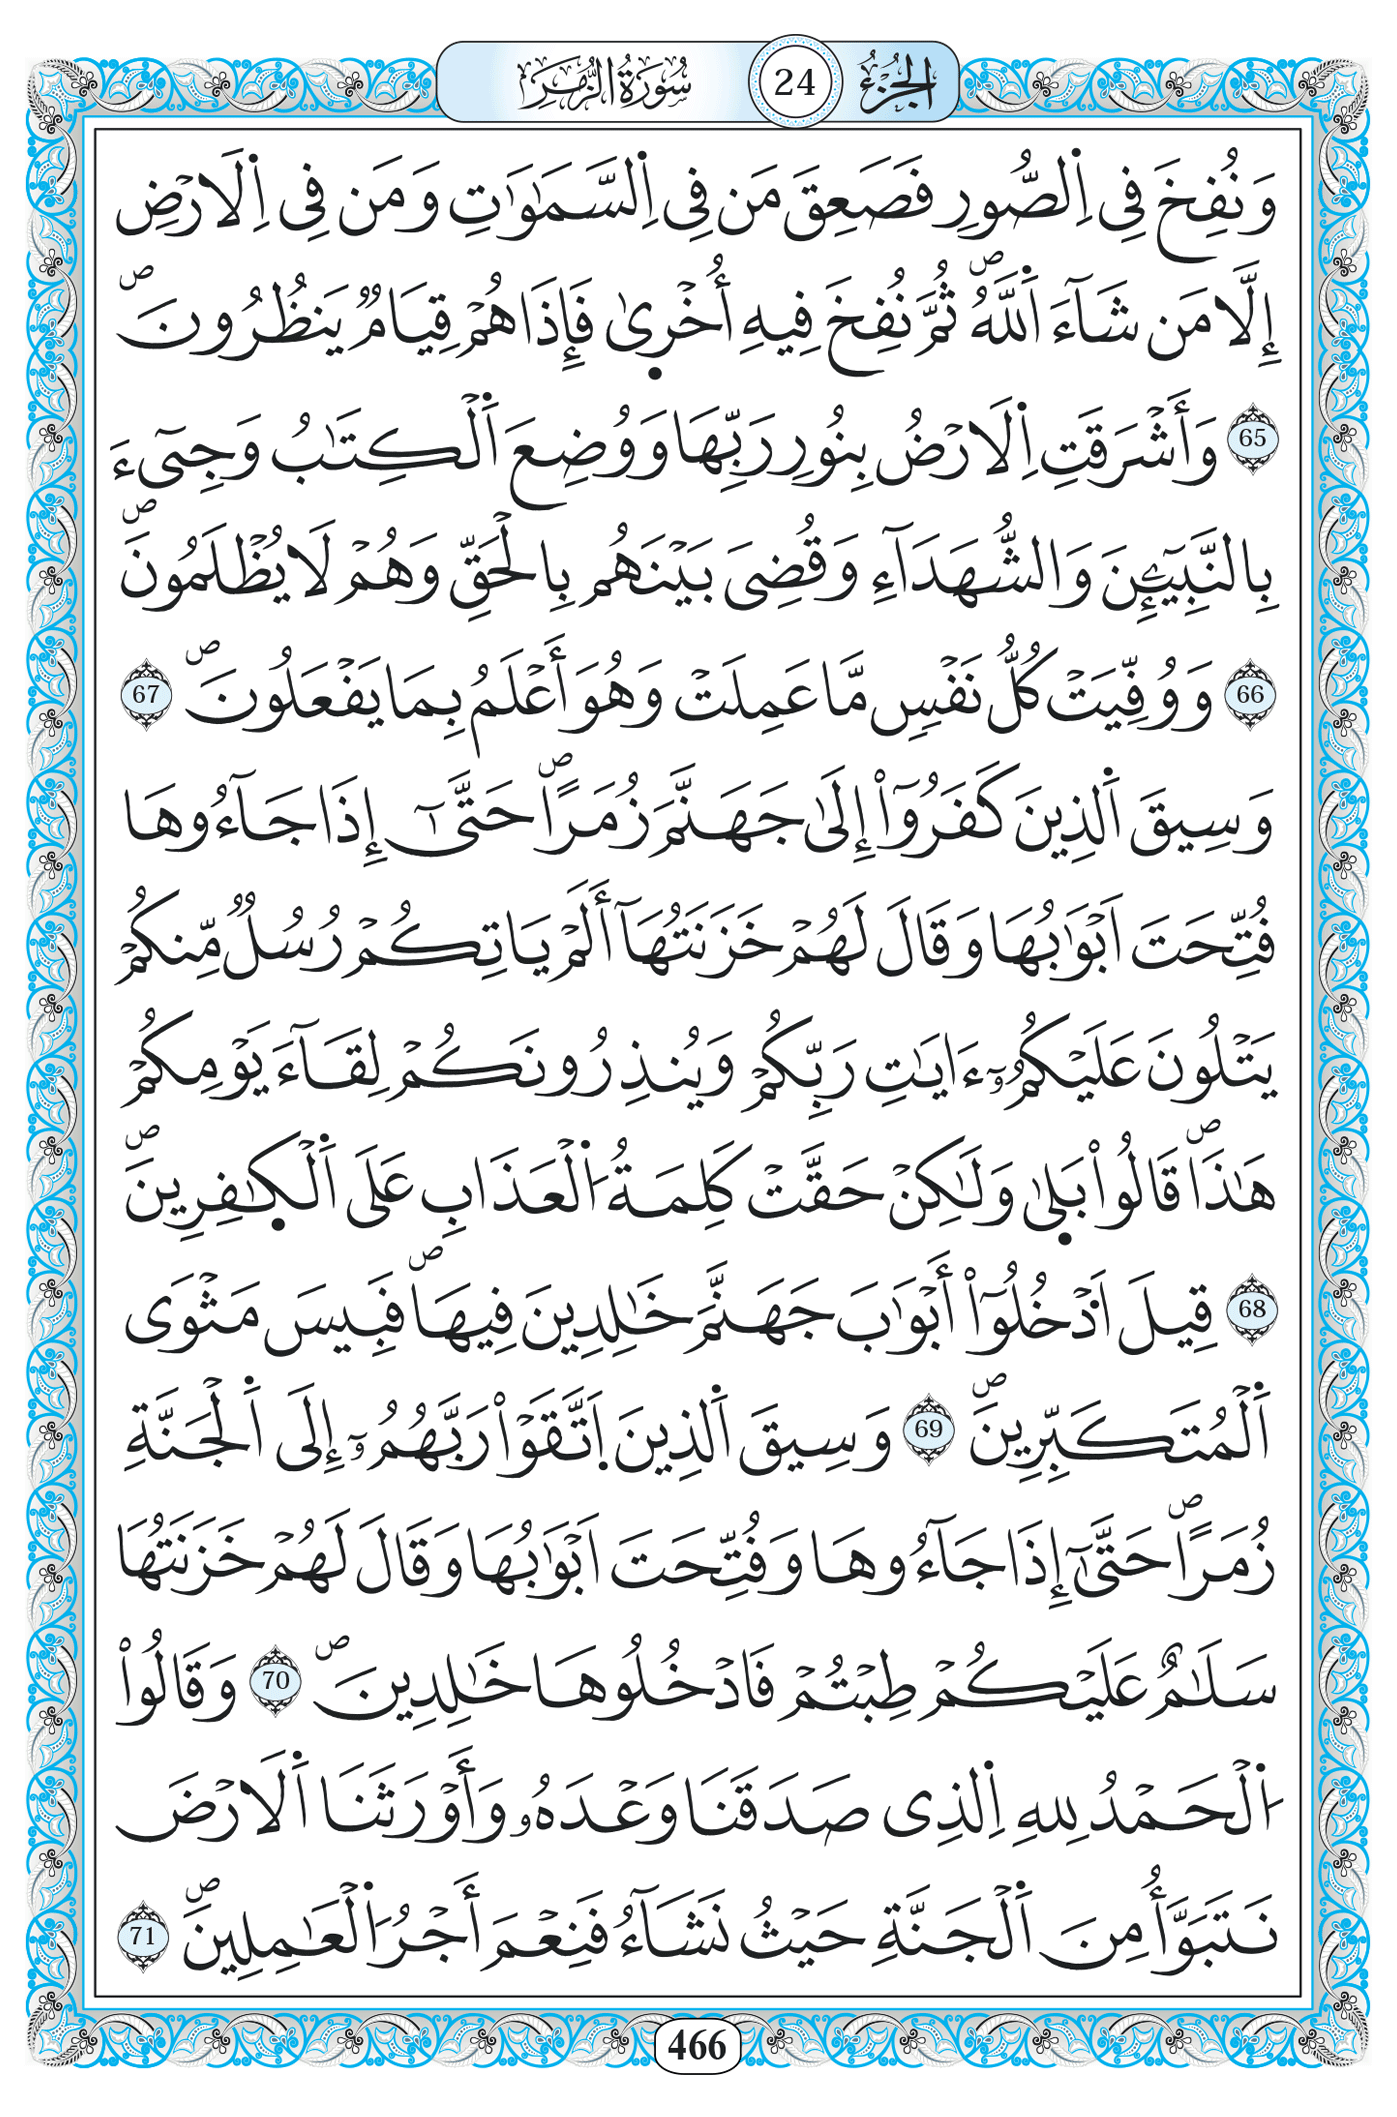 الجزء 24 سورة الزمر
وَنُفِخَ فِي اِ۬لصُّورِ فَصَعِقَ مَن فِي اِ۬لسَّمَٰوَٰتِ وَمَن فِي اِ۬لَارْضِ
إِلَّا مَن شَآءَ اَ۬للَّهُۖ ثُمَّ نُفِخَ فِيهِ أُخْر۪يٰ فَإِذَا هُمْ قِيَامٞ يَنظُرُونَۖ
65 وَأَشْرَقَتِ اِ۬لَارْضُ بِنُورِ رَبِّهَا وَوُضِعَ اَ۬لْكِتَٰبُ وَجِيٓءَ
بِالنَّبِيٓـِٕۧنَ وَالشُّهَدَآءِ وَقُضِيَ بَيْنَهُم بِالْحَقِّ وَهُمْ لَا يُظْلَمُونَۖ
66 وَوُفِّيَتْ كُلُّ نَفْسٖ مَّا عَمِلَتْ وَهُوَ أَعْلَمُ بِمَا يَفْعَلُونَۖ 67
وَسِيقَ اَ۬لذِينَ كَفَرُوٓاْ إِلَىٰ جَهَنَّمَ زُمَراًۖ حَتَّىٰٓ إِذَا جَآءُوهَا
فُتِّحَتَ اَبْوَٰبُهَا وَقَالَ لَهُمْ خَزَنَتُهَآ أَلَمْ يَاتِكُمْ رُسُلٞ مِّنكُمْ
يَتْلُونَ عَلَيْكُمُۥٓ ءَايَٰتِ رَبِّكُمْ وَيُنذِرُونَكُمْ لِقَآءَ يَوْمِكُمْ
هَٰذَاۖ قَالُواْ بَل۪يٰ وَلَٰكِنْ حَقَّتْ كَلِمَةُ اُ۬لْعَذَابِ عَلَى اَ۬لْكٰ۪فِرِينَۖ
68 قِيلَ اَ۟دْخُلُوٓاْ أَبْوَٰبَ جَهَنَّمَ خَٰلِدِينَ فِيهَاۖ فَبِيسَ مَثْوَى
اَ۬لْمُتَكَبِّرِينَۖ 69 وَسِيقَ اَ۬لذِينَ اَ۪تَّقَوْاْ رَبَّهُمُۥٓ إِلَى اَ۬لْجَنَّةِ
زُمَراًۖ حَتَّىٰٓ إِذَا جَآءُوهَا وَفُتِّحَتَ اَبْوَٰبُهَا وَقَالَ لَهُمْ خَزَنَتُهَا
سَلَٰمٌ عَلَيْكُمْ طِبْتُمْ فَادْخُلُوهَا خَٰلِدِينَۖ 70 وَقَالُواْ
اُ۬لْحَمْدُ لِلهِ اِ۬لذِي صَدَقَنَا وَعْدَهُۥ وَأَوْرَثَنَا اَ۬لَارْضَ
نَتَبَوَّأُ مِنَ اَ۬لْجَنَّةِ حَيْثُ نَشَآءُ فَنِعْمَ أَجْرُ اُ۬لْعَٰمِلِينَۖ 71
466